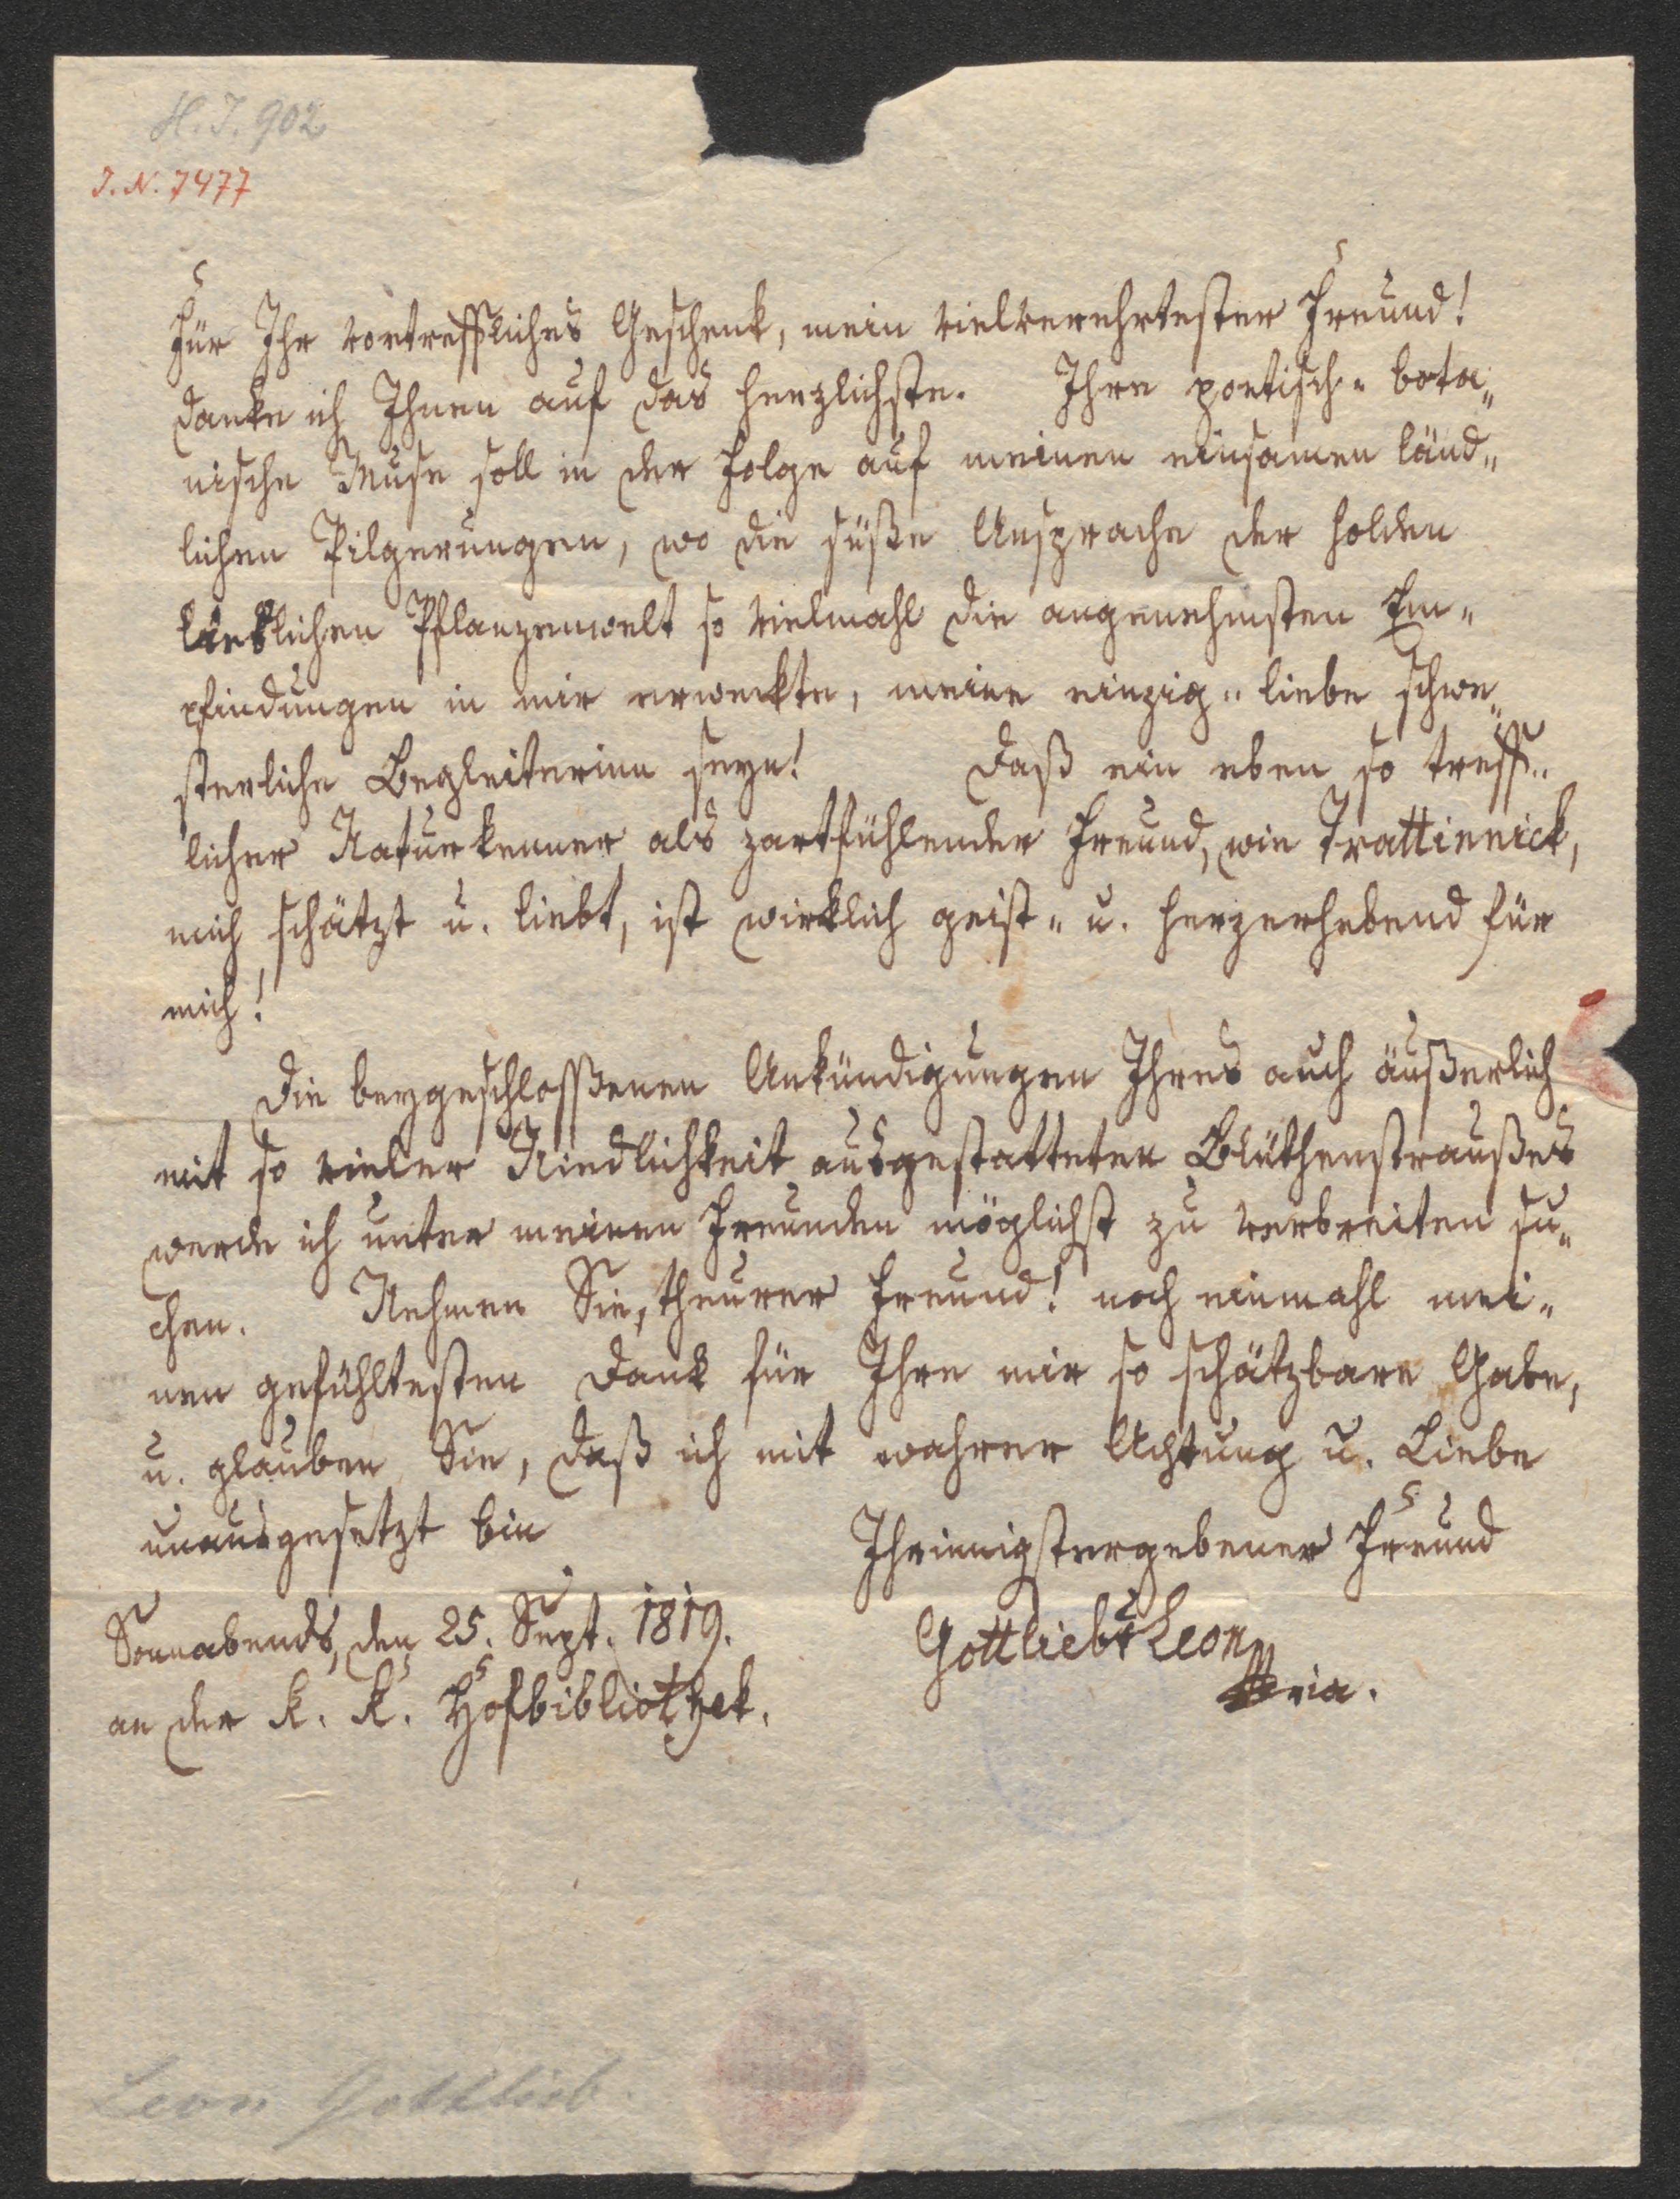 H. I. 902
I. N. 7477
Für Ihr vortreffliches Geschenk, mein vielverehrtester Freund!
danke ich Ihnen auf das herzlichste. Ihre poetisch-bota„
nische Muse soll in der Folge auf meinen einsamen länd„
lichen Pilgerungen, wo die süße Ansprache der holden
lieblichen Pflanzenwelt so vielmahl die angenehmsten Em„
pfindungen in mir erweckte, meine einzig„ liebe schwe„
sterliche Begleiterinn seyn! Daß ein eben so treff„
licher Naturkenner als zartfühlender Freund, wie Trattinnick,
mich schätzt u. liebt, ist wirklich geist„ u. herzerhebend für
mich!
Die beygeschloßenen Ankündigungen Ihres auch äußerlich
mit so vieler Niedlichkeit ausgestatteten Blüthenstraußes
werde ich unter meinen Freunden möglichst zu verbreiten su„
chen. Nehmen Sie, theurer Freund! noch einmahl mei„
nen gefühltesten Dank für Ihre mir so schätzbare Gabe,
u. glauben Sie, daß ich mit wahrer Achtung u. Liebe
unausgesetzt bin
Ihrinnigstergebener Freund
Sonnabends, den 25. Sept. 1819.
Gottlieb Leon
an der k. k. Hofbibliothek.
Leon Gottlieb.